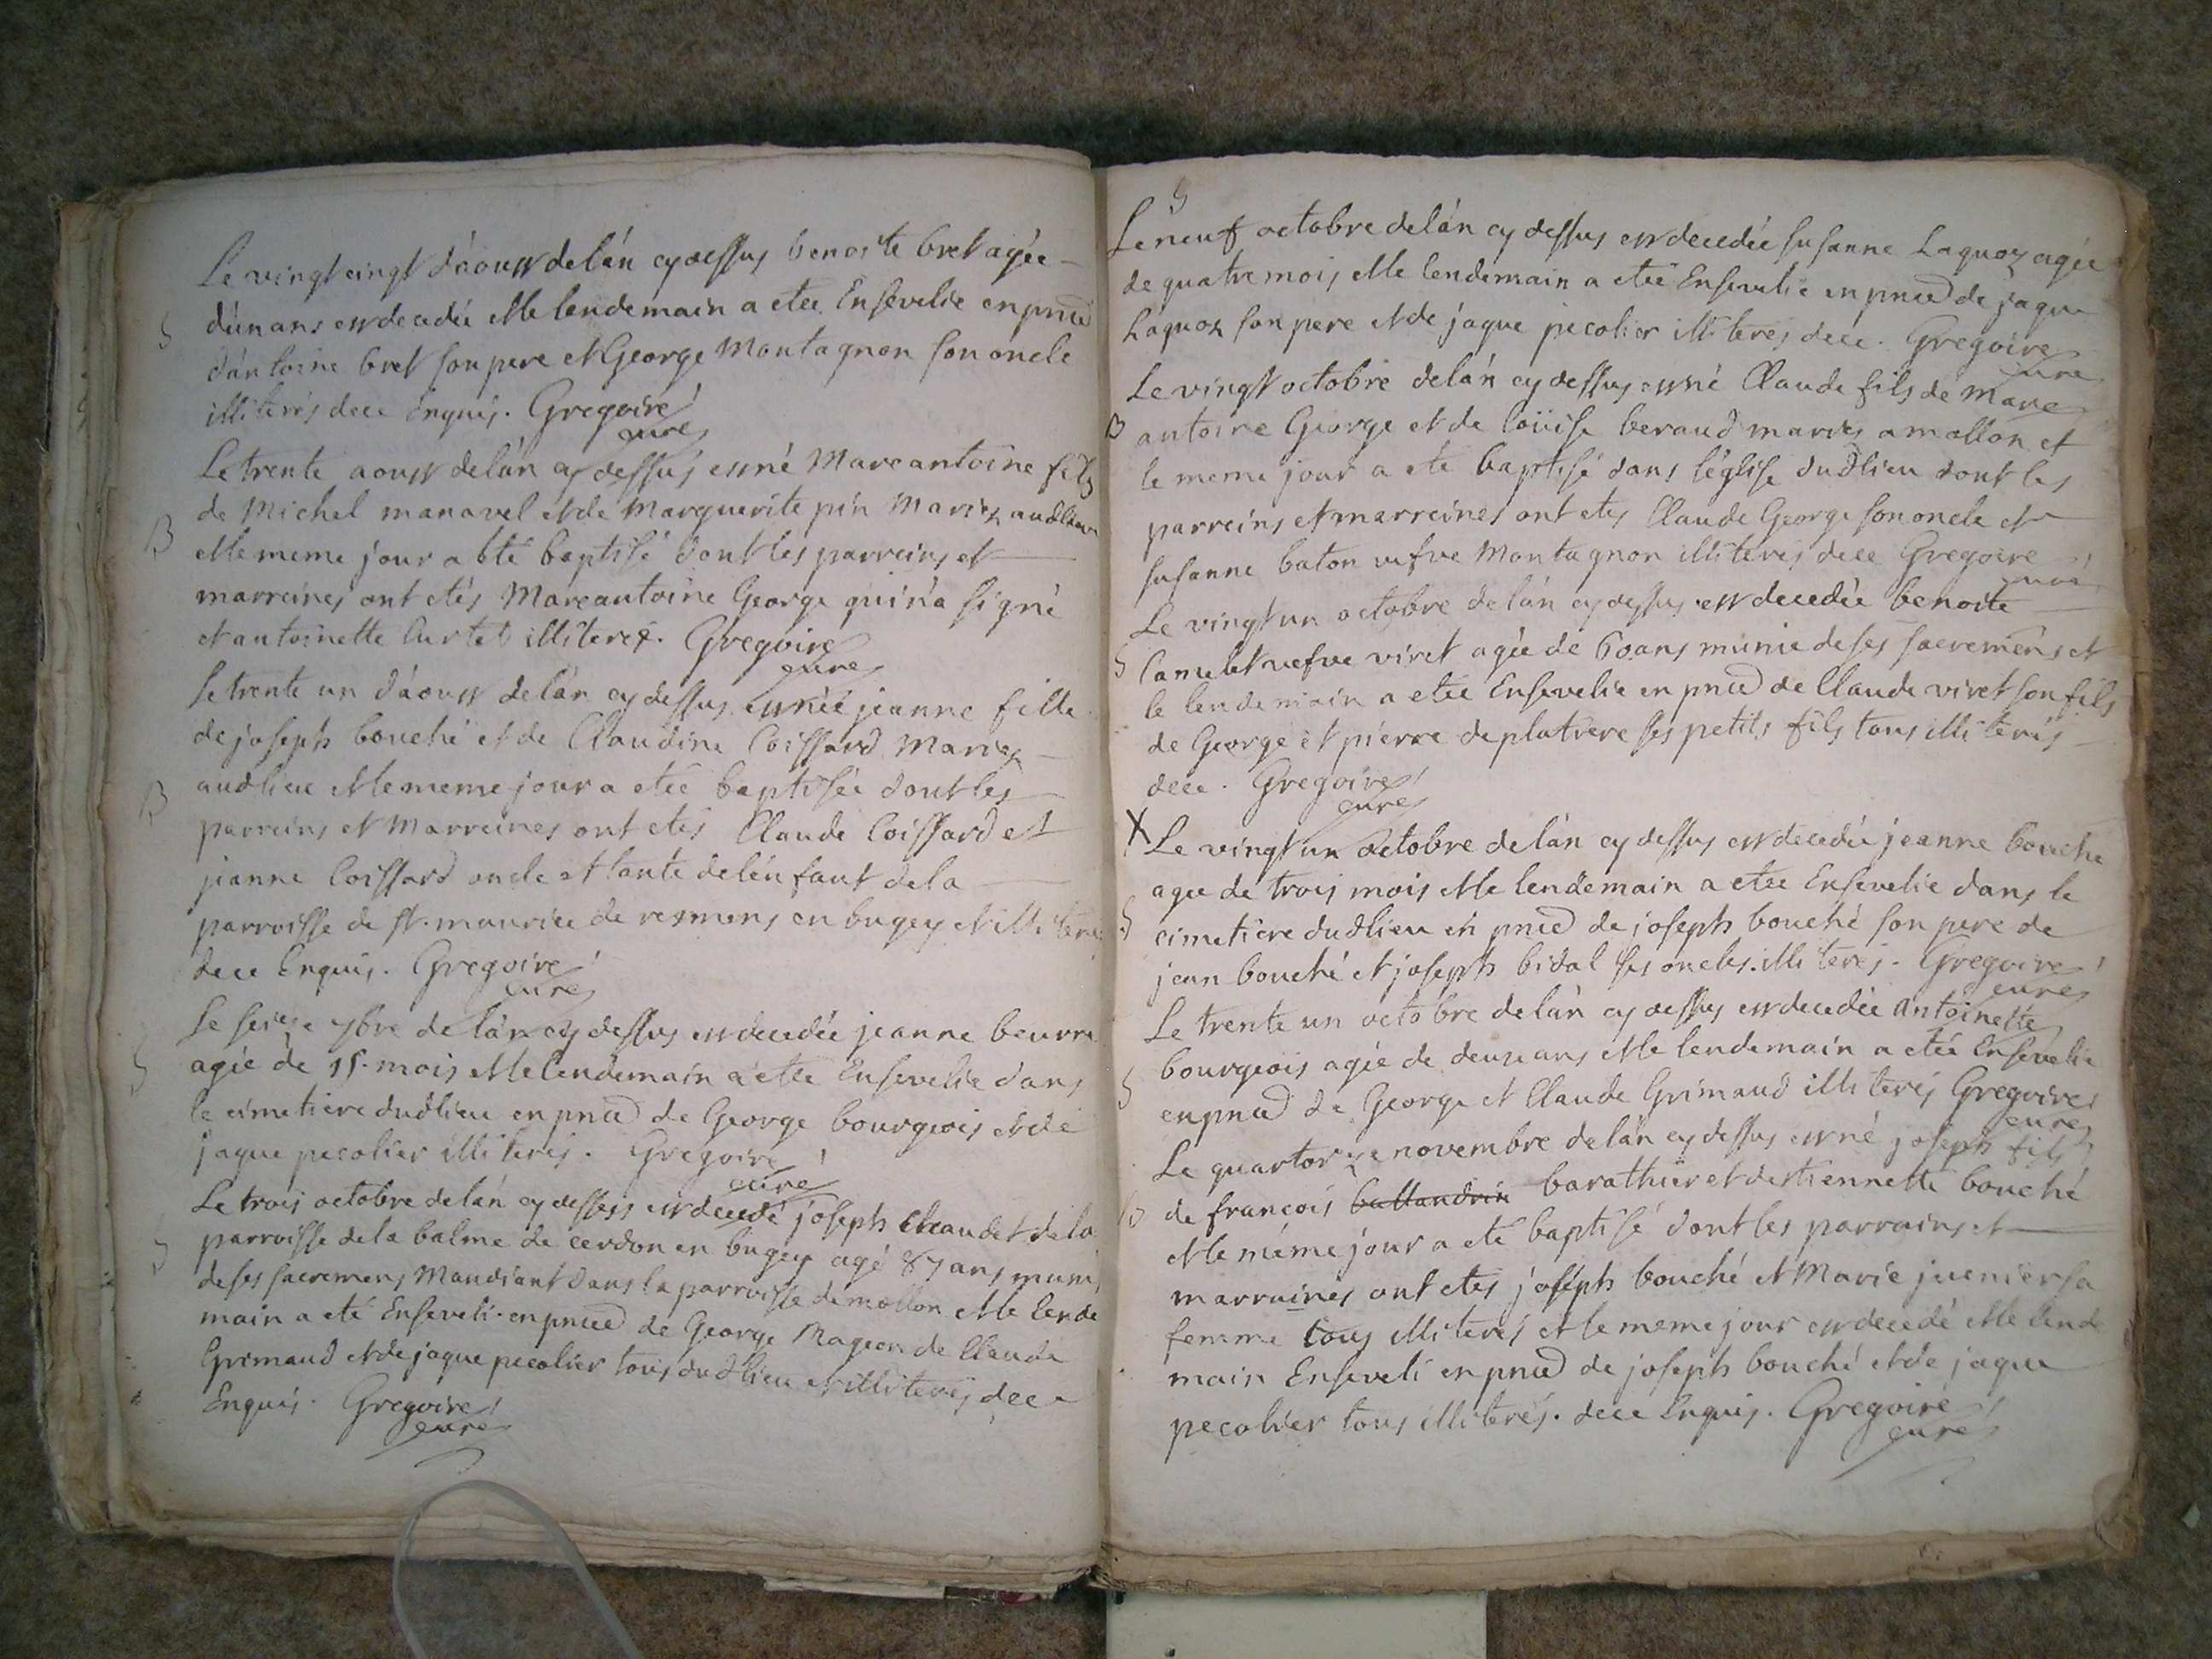 Le vingt cinqt d'àoust de lán cy dessus benoite bret agée
S
dún ans est decedée et le lendemain a etée Ensevelie en pnce
d'ántoine bret son pere et George Montagnon son oncle
illiterés de ce Enquis. Gregoire
curé
Le trente aoust de lán cy dessus est né Marcantoine fils
de Michel manavel et de Marguerite pin Mariez audlieu
B
et le meme jour a été baptisé dont les parreins et
marreines ont etés Marcantoine George qui n'a signé
et antoinette Curtet illiteréz. Gregoire
curé
Le trente un d'áoust de lán cy dessus est née jeanne fille
de joseph bouché et de Claudine Coissard Mariez
B
audlieu et le meme jour a etée baptisée dont les
parreins et Marreines ont etés Claude Coissard et
jeanne Coissard oncle et tante de lénfant de la
parroisse de St. maurice de remens en bugey et illiterés
de ce Enquis. Gregoire
curé
Le seize 7bre de lán cy dessus est decedée jeanne beurre
S
agée de 15. mois et le lendemain a etée Ensevelie dans
le cimetiere dudlieu en pnce de George bourgeois et de
jaque pecolier illiterés. Gregoire
curé
Le trois octobre de lán cy dessus est decedé joseph Chaudet de la
S
parroisse de la balme de cerdon en bugey agé 87 ans muni
de ses sacremens Mandiant dans la parroisse de mollon et le lende
main a eté Enseveli en pnce de George Mageon de Claude
Grimaud et de jaque pecolier tous dudlieu et illiterés de ce
Enquis. Gregoire
curé
S
Le neuf octobre de lán cy dessus est decedée susanne Laquoz agée
de quatre mois et le lendemain a etée Ensevelie en pnce de jaque
Laquoz son pere et de jaque pecolier illiterés de ce. Gregoire
curé
Le vingt octobre de lán cy dessus est né Claude fils de Marc
B
antoine George et de loüise beraud mariés a mollon et
le meme jour a eté baptisé dans léglise dudlieu dont les
parreins et marreines ont etés Claude George son oncle et
susanne baton vefve Montagnon illiterés de ce Gregoire
curé
Le vingt un octobre de lán cy dessus est decedée benoite
S
Camelet vefve viret agée de 60 ans munie de ses sacremens et
le lendemain a etée Ensevelie en pnce de Claude viret son fils
de George et piérre deplatrere ses petits fils tous illiterés
de ce. Gregoire
curé
X
Le vingt un octobre de lán cy dessus est decedée jeanne bouche
agee de trois mois et le lendemain a etée Ensevelie dans le
S
cimetiere dudlieu en pnce de joseph bouché son pere de
jean bouché et joseph bidal ses oncles illiterés. Gregoire
curé
Le trente un octobre de lán cy dessus est decedée antoinette
bourgeois agée de deux ans et le lendemain a etée Ensevelie
S
en pnce de George et Claude Grimaud illiterés Gregoire
curé
Le quartorze novembre de lán cy dessus est né joseph fils
B
de francois ballandrin barathier et destiennette bouché
et le méme jour a eté baptisé dont les parrains et
marraines ont etés joséph bouché et Marie juenier sa
femme tous illiterés et le meme jour est decedé et le lende
main Enseveli en pnce de joseph bouché et de jaque
pecolier tous illiterés. de ce Enquis. Gregoire
curé